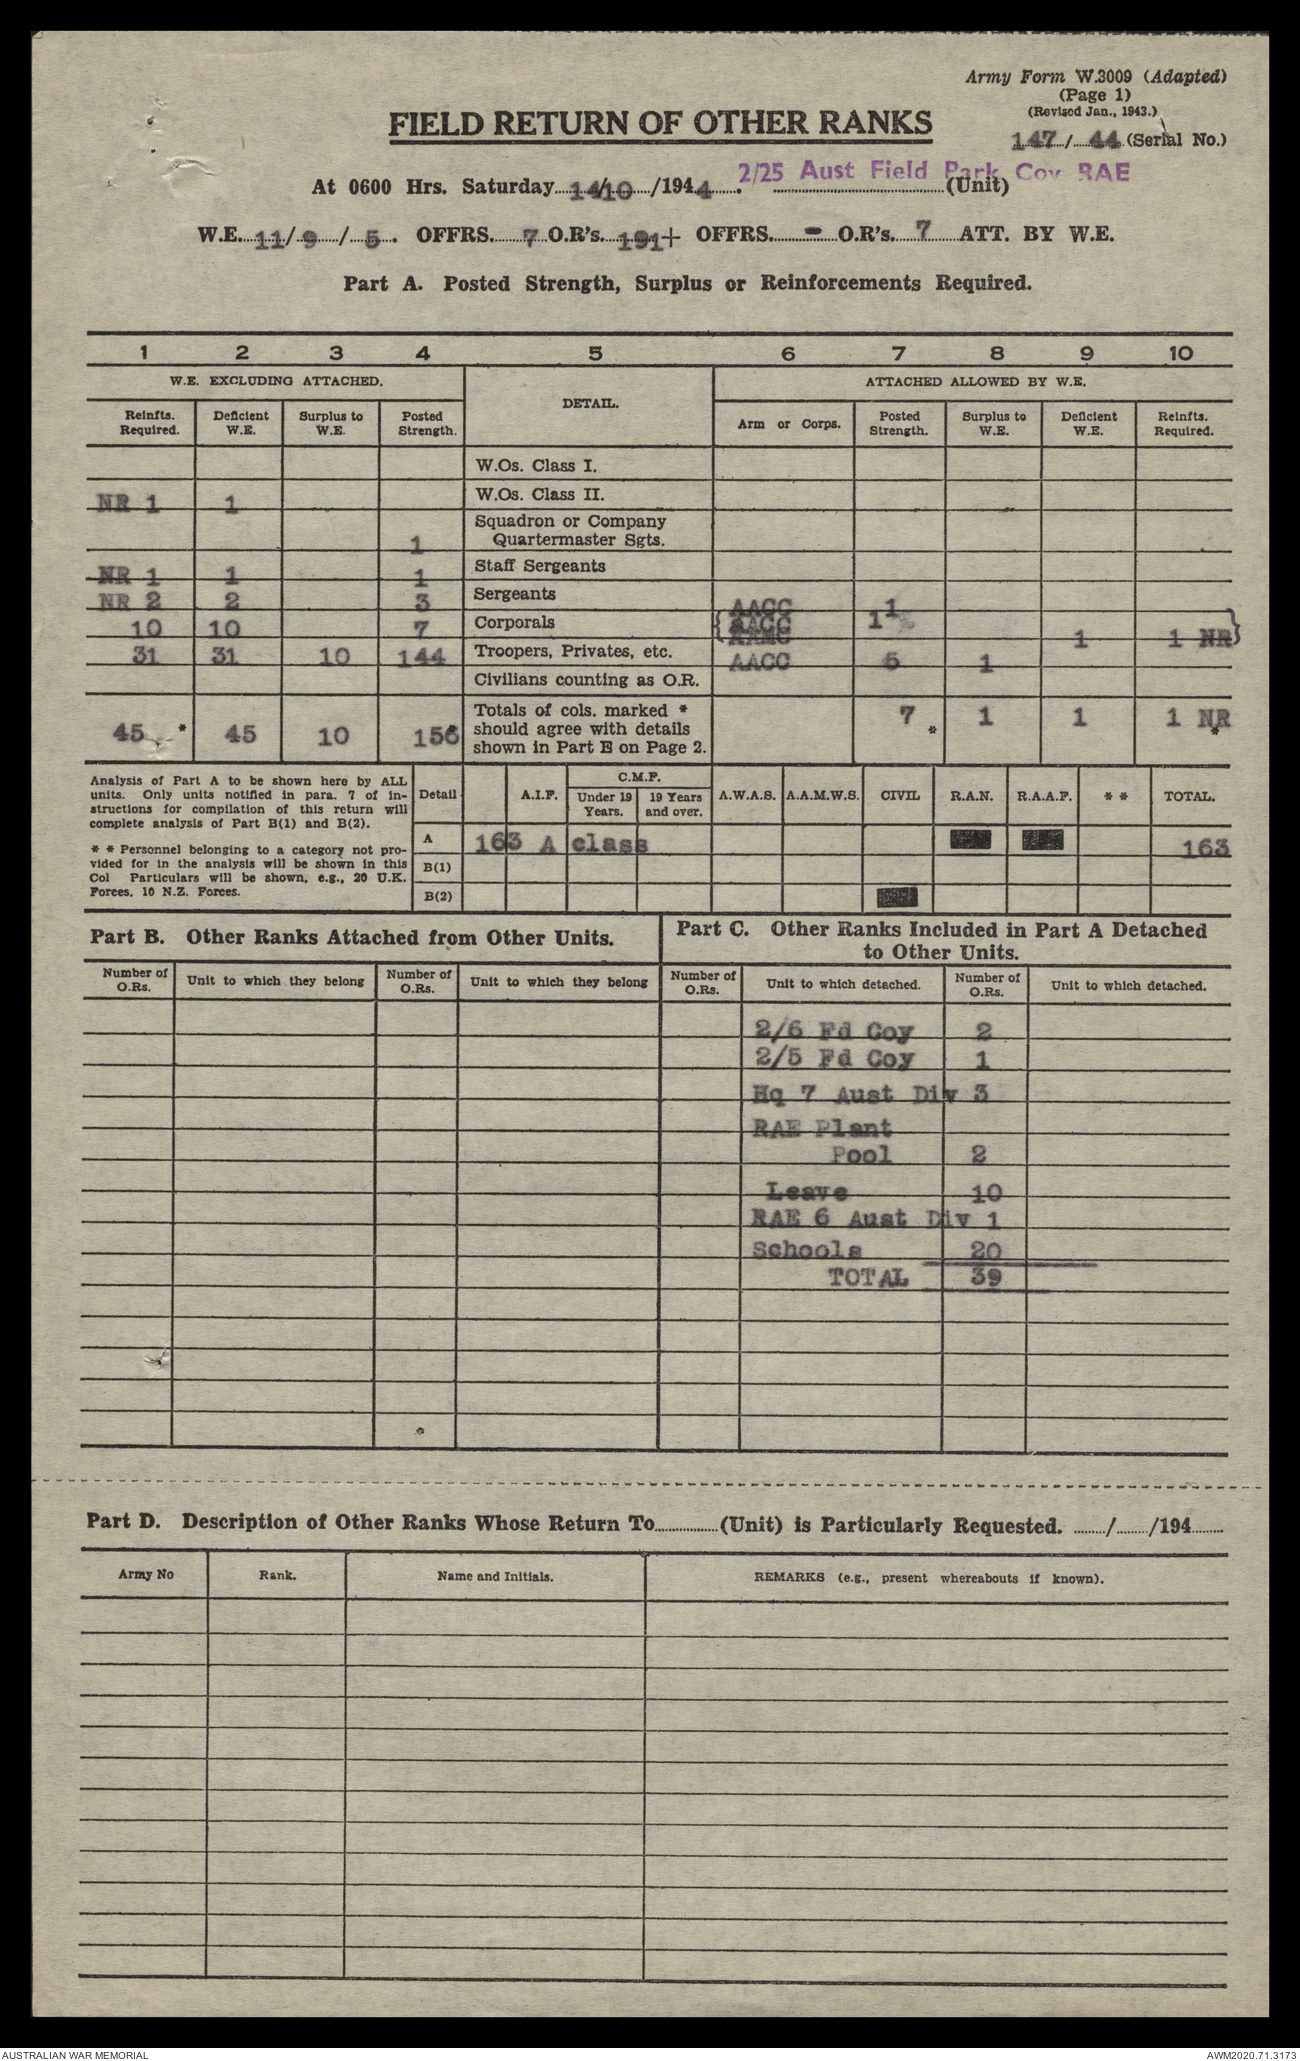 Army Form W.3009 (Adapted)
(Page 1)
(Revised Jan., 1943.)
FIELD RETURN OF OTHER RANKS
147/44 (Serial No.)
2/25 Aust Field Park Coy RAE
At 0600 Hrs. Saturday 14/10/1944. (Unit)
W.E. 11/9/5. OFFRS. 7 O.R's. 191 + OFFRS. - O.R's. 7 ATT. BY W.E.
Part A. Posted Strength, Surplus or Reinforcements Required.
1 2 3 4 5 6 7 8 9 10
W.E. EXCLUDING ATTACHED. DETAIL. ATTACHED ALLOWED BY W.E.
Reinfts. Required. Deficient W.E. Surplus to W.E. Posted Strength. Arm or Corps. Posted Strength. Surplus to W.E. Deficient W.E. Reinfts. Required.
W.Os. Class I.
NR 1 1 W.Os. Class II.
Squadron or Company
1 Quartermaster Sgts.
NR 1 1 1 Staff Sergeants
NR 2 2 3 Sergeants AACC 1
10 10 7 Corporals { AACC 1
AAMC 1 1 NR }
31 31 10 144 Troopers, Privates, etc. AACC 5 1
Civilians counting as O.R.
45 * 45 10 156 * Totals of cols. marked * should agree with details shown in Part B on Page 2. 7 * 1 1 1 NR *
Analysis of Part A to be shown here by ALL
units. Only units notified in para. 7 of in-
structions for compilation of this return will
complete analysis of Part B(1) and B(2).
* * Personnel belonging to a category not pro-
vided for in the analysis will be shown in this
Col Particulars will be shown, e.g., 20 U.K.
Forces, 10 N.Z. Forces.
Detail A.I.F. C.M.F. Under 19 Years. 19 Years and over. A.W.A.S. A.A.M.W.S. CIVIL R.A.N. R.A.A.F. * * TOTAL.
A 163 A class 163
B(1)
B(2)
Part B. Other Ranks Attached from Other Units.
Number of O.Rs. Unit to which they belong Number of O.Rs. Unit to which they belong
Part C. Other Ranks Included in Part A Detached
to Other Units.
Number of O.Rs. Unit to which detached. Number of O.Rs. Unit to which detached.
2/6 Fd Coy 2
2/5 Fd Coy 1
Hq 7 Aust Div 3
RAE Plant
Pool 2
Leave 10
RAE 6 Aust Div 1
Schools 20
TOTAL 39
Part D. Description of Other Ranks Whose Return To.............(Unit) is Particularly Requested. ......../......../194........
Army No Rank. Name and Initials. REMARKS (e.g., present whereabouts if known).
AUSTRALIAN WAR MEMORIAL AWM2020.71.3173